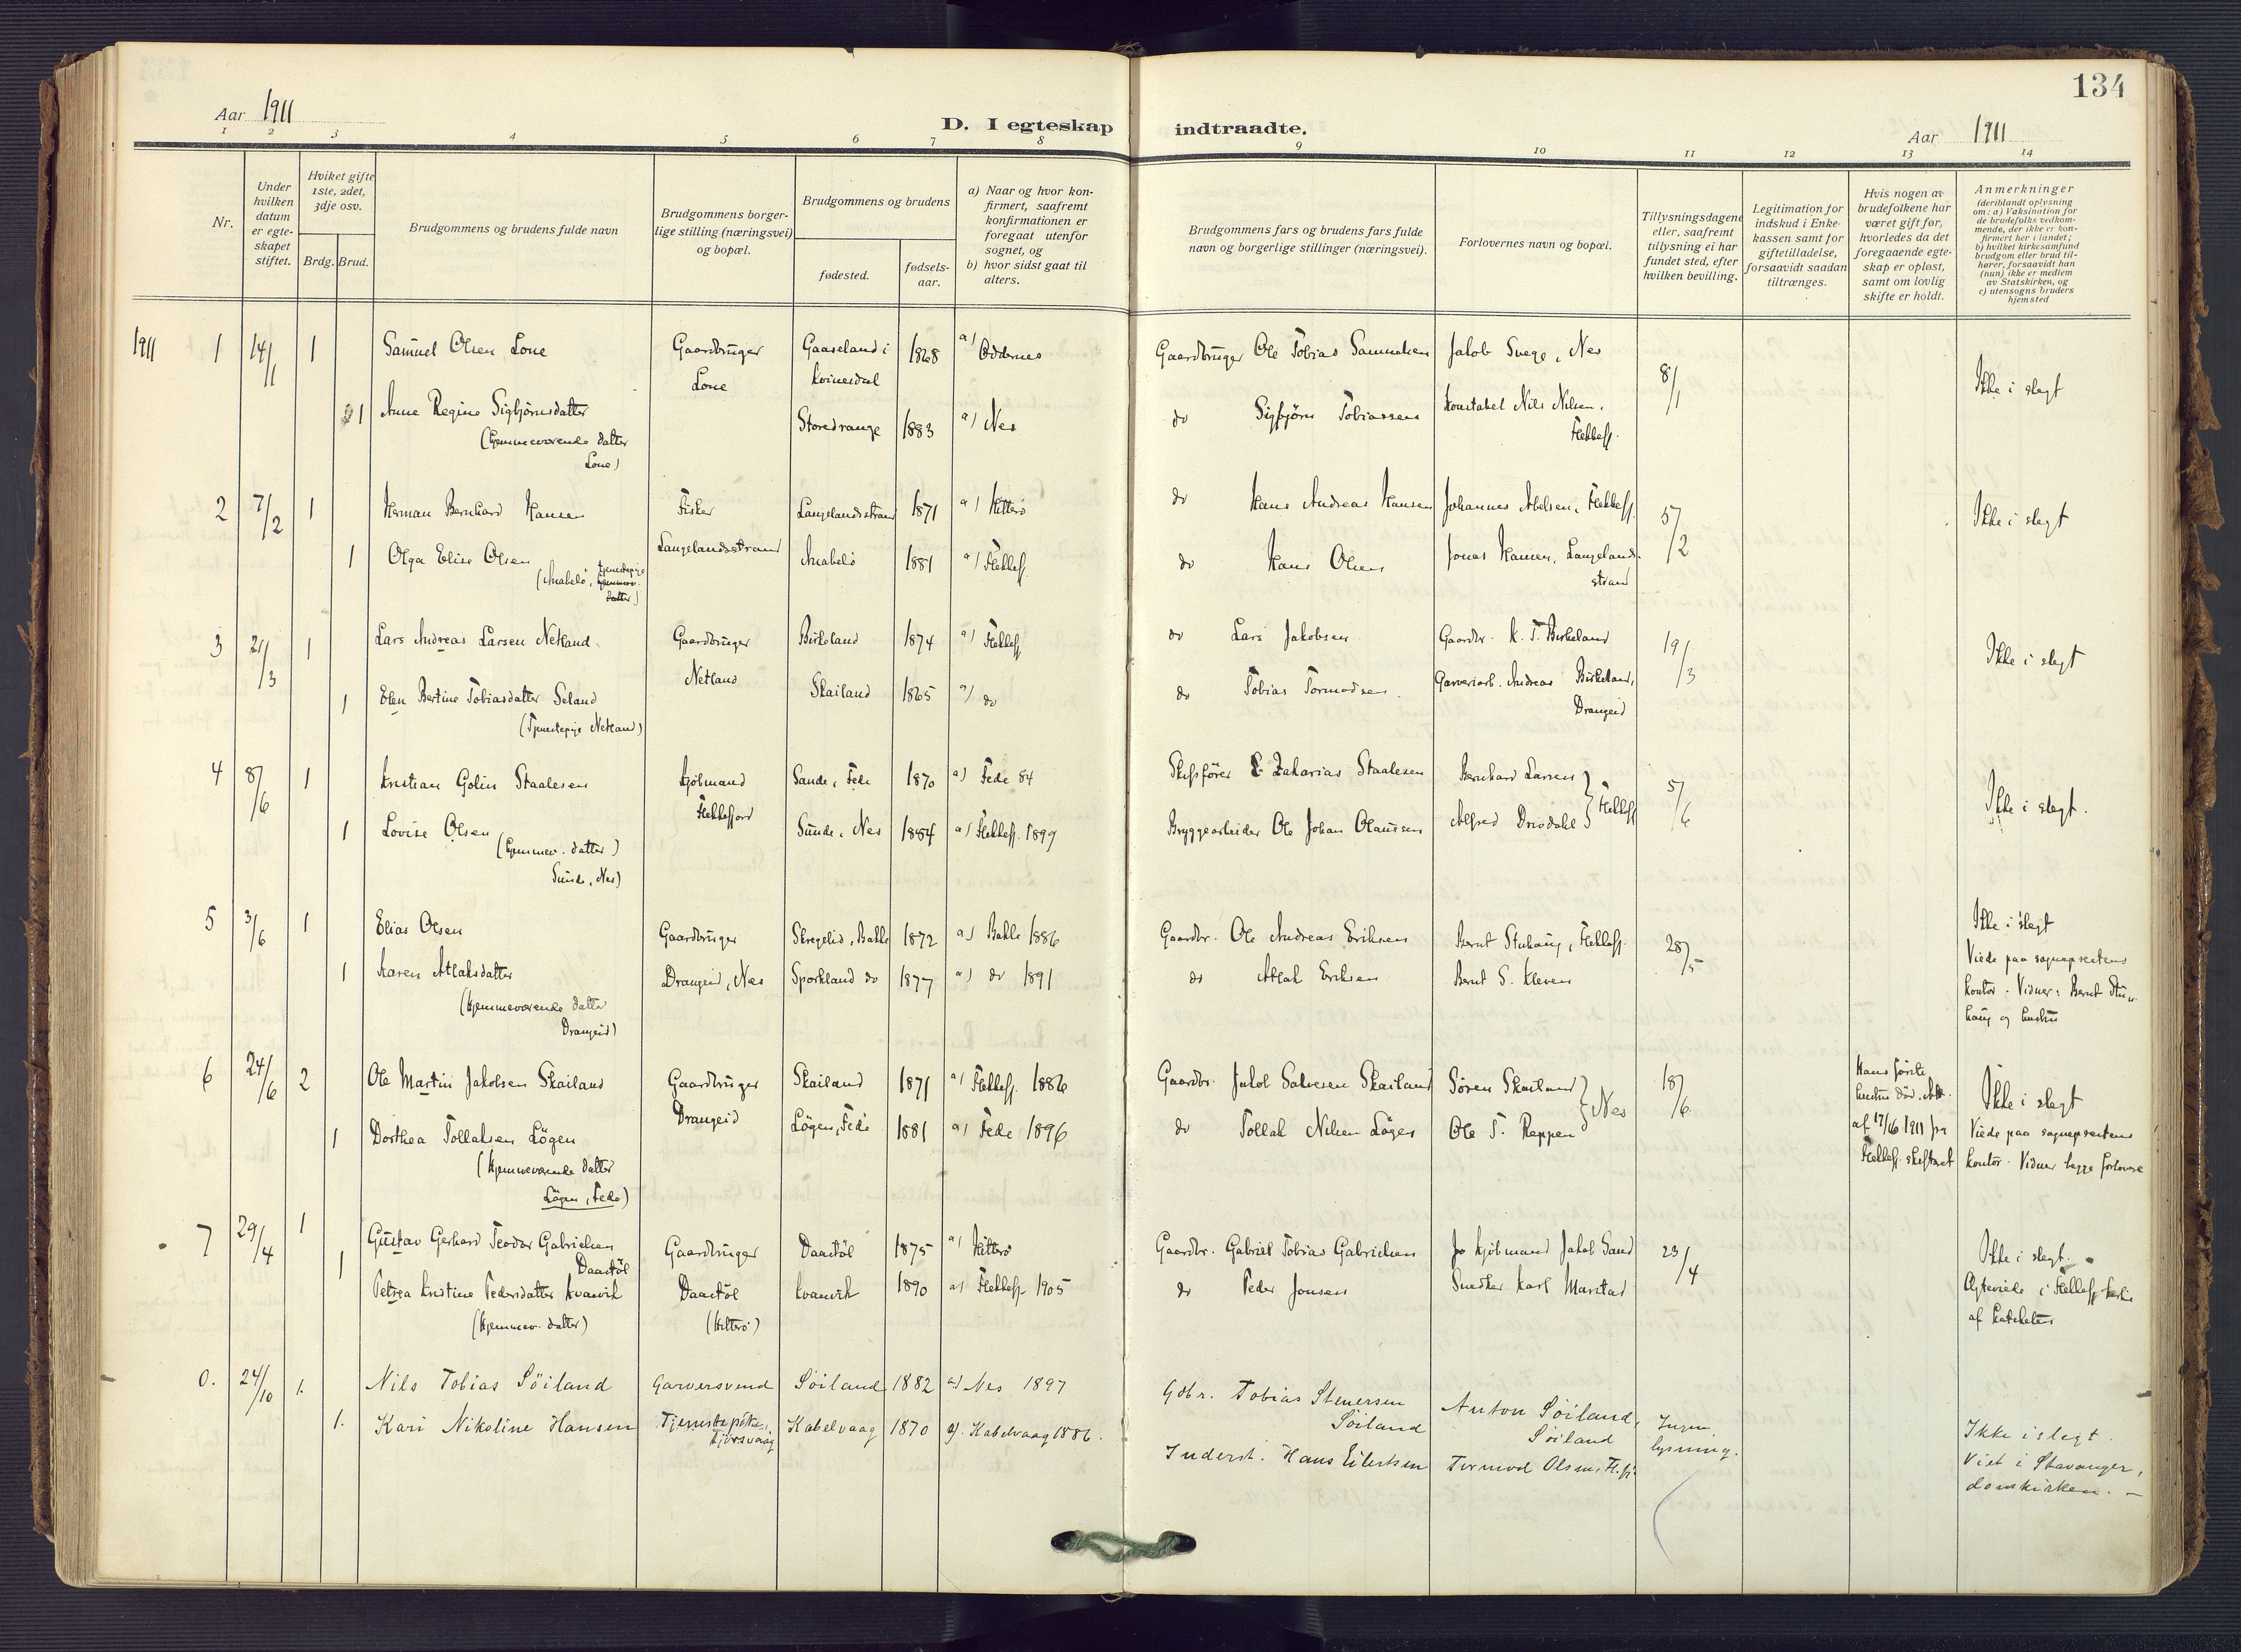 134
Aar 1911
D. I egteskap indtraadte.
Aar 1911
1 2 3 4 5 6 7 8 9 10 11 12 13 14
Nr.
Under hvilken datum er egteskapet stiftet.
Hviket gifte 1ste, 2det, 3dje osv.
Brdg. Brud.
Brudgommens og brudens fulde navn
Brudgommens borgerlige stilling (næringsvei) og bopæl.
Brudgommens og brudens
fødested.
fødselsaar.
a) Naar og hvor konfirmert, saafremt konfirmationen er foregaat utenfor sognet, og
b) hvor sidst gaat til alters.
Brudgommens fars og brudens fars fulde navn og borgerlige stillinger (næringsvei).
Forlovernes navn og bopæl.
Tillysningsdagene eller, saafremt tillysning ei har fundet sted, efter hvilken bevilling.
Legitimation for indskud i Enkekassen samt for giftetilladelse, forsaavidt saadan tiltrænges.
Hvis nogen av brudefolkene har været gift før, hvorledes da det foregaaende egteskap er opløst, samt om lovlig skifte er holdt.
Anmerkninger (deriblandt oplysning om: a) Vaksination for de brudefolks vedkommende, der ikke er konfirmert her i landet; b) hvilket kirkesamfund brudgom eller brud tilhører, forsaavidt han (hun) ikke er medlem av Statskirken, og c) utensogns bruders hjemsted
1911 1 14/1 1 Samuel Olsen Lone Gaardbruger Gaaseland i 1868 a) Oddernes Gaardbruger Ole Tobias Samuelsen Jakob Svege, Nes 8/1 Ikke i slegt
Lone Kvinesdal
1 Anne Regine Sigbjørnsdatter Storedrange 1883 a) Nes do Sigbjørn Tobiassen Konstabel Nils Nilsen,
(hjemmeværende datter Flekkefj.
Lone)
2 7/2 1 Herman Bernhard Hansen Fisker Langelandsstrand 1871 a) Hitterö do Hans Andreas Hansen Johannes Abelsen, Flekkefj. 5/2 Ikke i slegt
Langelandsstrand
1 Olga Elise Olsen Anabelö 1881 a) Flekkefj. do Hans Olsen Jonas Hansen, Langelands-
(Anabelö, tjenestepige strand
hjemmev. datter)
3 21/3 1 Lars Andreas Larsen Netland Gaardbruger Birkeland 1874 a) Flekkefj do Lars Jakobsen Gaardbr. K. T. Birkeland 19/3 Ikke i slegt
Netland
1 Elen Bertine Tobiasdatter Seland Skailand 1865 a) do do Tobias Tormodsen. Garveriarb. Andreas Birkeland,
(Tjenestepige Netland) Drangeid
4 8/6 1 Kristian Golin Staalesen Kjöbmand Sande, Fede 1870 a) Fede 84 Skipsförer Zakarias Staalesen Bernhard Larsen } Flekkefj 5/6 Ikke i slegt.
Flekkefjord
1 Lovise Olsen Sunde, Nes 1884 a) Flekkefj. 1899 Bryggearbeider Ole Johan Olaussen Alfred Drivdahl
(hjemmev. datter)
Sunde, Nes)
5 3/6 1 Elias Olsen Gaardbruger Skregelid, Bakke 1872 a) Bakke 1886 Gaardbr. Ole Andreas Eriksen Bernt Stuhaug, Flekkefj. 28/5 Ikke i slegt
Viede paa sogneprestens
1 Karen Atlaksdatter Drangeid, Nes Sporkland do 1877 a) do 1891 do Atlak Eriksen Bernt S. Kleven kontor. Vidner: Bernt Stu-
(hjemmeværende datter haug og hustru
Drangeid)
6 24/6 2 Ole Martin Jakobsen Skailand Gaardbruger Skailand 1871 a) Flekkefj. 1886 Gaardbr. Jakob Salvesen Skailand Sören Skailand } Nes 18/6 Hans förste Ikke i slegt
Drangeid hustru död. Att.
1 Dorthea Tollaksen Lögen Lögen, Fede 1881 a) Fede 1896 do Tollak Nilsen Lögen Ole T. Reppen af 17/6 1911 fra Viede paa sogneprestens
(hjemmeværende datter Flekkefj. skifteret kontor. Vidner begge forlovere
Lögen, Fede)
7 29/4 1 Gustav Gerhard Teodor Gabrielsen Gaardbruger Daastöl 1875 a) Hitterö Gaardbr. Gabriel Tobias Gabrielsen Kjöbmand Jakob Sand 23/4 Ikke i slegt.
Daastöl
1 Petrea Kristine Pedersdatter Kvanvik Daastöl Kvanvik 1890 a) Flekkefj. 1905 do Peder Jonsen Snedker Karl Marstad Egteviede i Flekkefj. kirke
(hjemmev. datter) (Hitterö) af Kateketen
0. 24/10 1. Nils Tobias Söiland Garversvend Söiland 1882 a) Nes 1897 Gdbr. Tobias Stenersen Anton Söiland,
Söiland Söiland
1. Kari Nikoline Hansen Tjenestepike, Kabelvaag 1870 a). Kabelvaag 1886. Inderst. Hans Eilertsen Tormod Olsen, Fl.fj. Ingen Ikke i slegt.
Tjörsvaag lysning. Viet i Stavanger,
domkirken. –